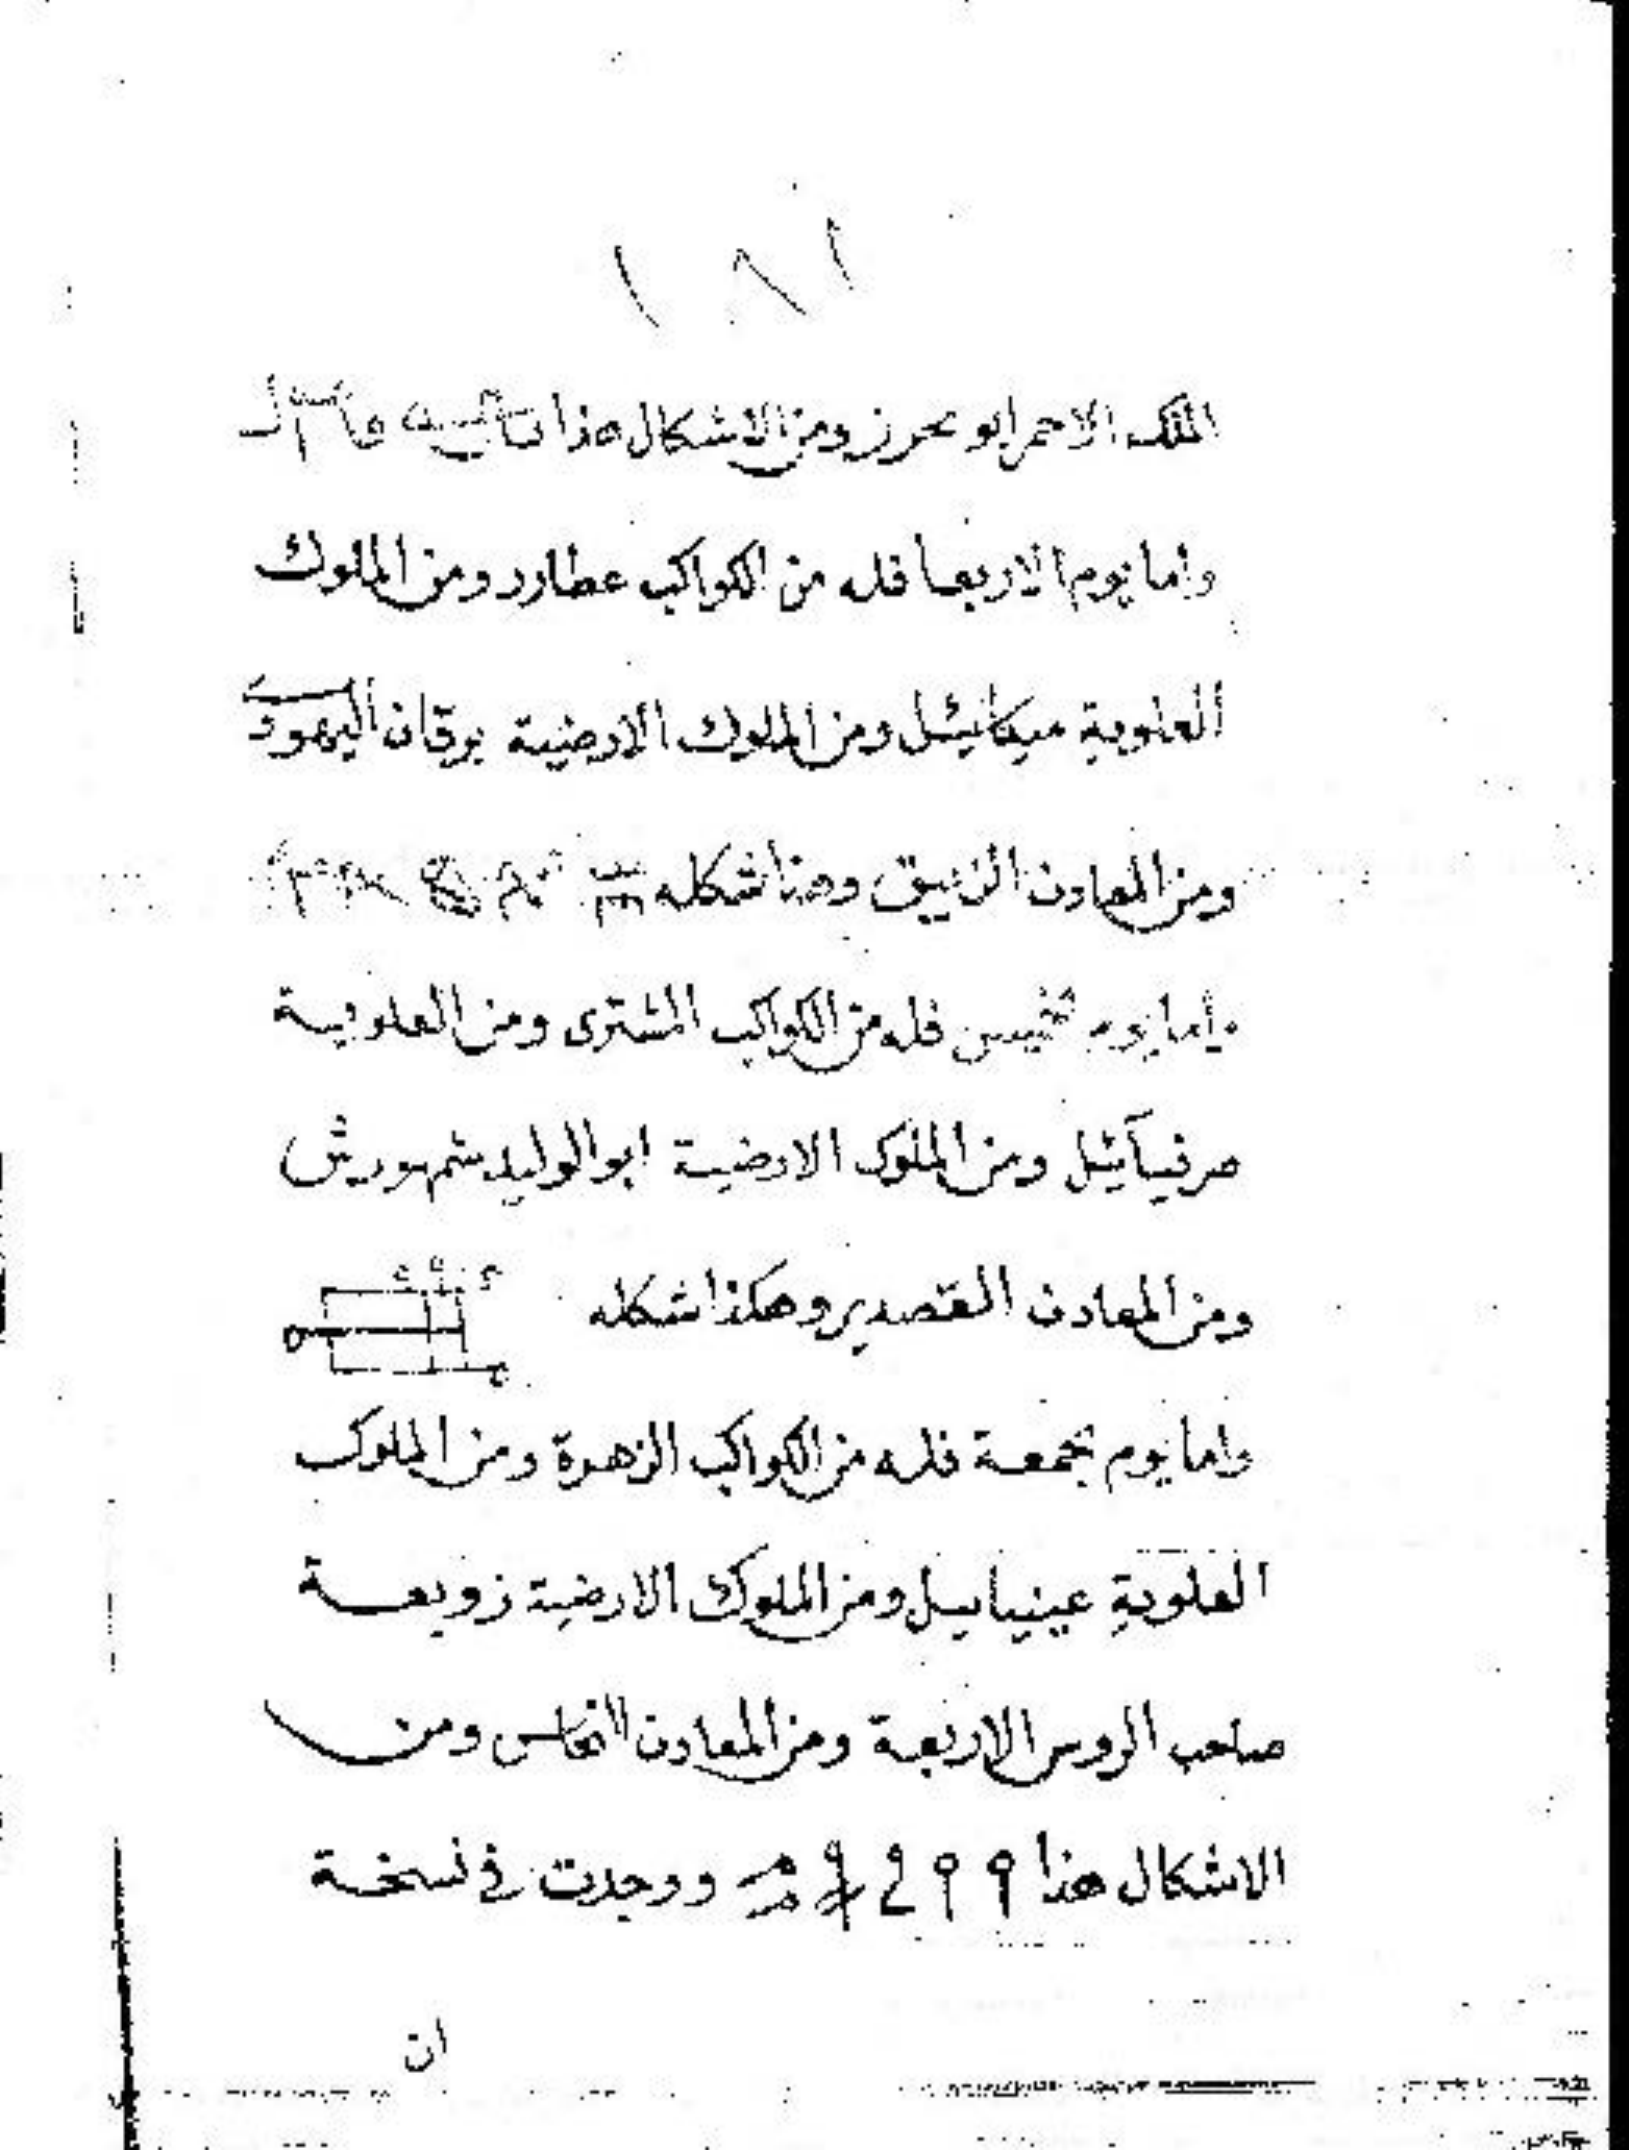 ١٨١
الملك الاحمر ابو محرز ومن الاشكال هذا
واما يوم الاربعا فله من الكواكب عطارد ومن الملوك
العلوية ميكائيل ومن الملوك الارضية برقان اليهودى
ومن المعادن الزيبق وهذا شكله
واما يوم خميس فله من الكواكب المشترى ومن العلوية
صرفيائيل ومن الملوك الارضية ابو الوليد شمهورش
ومن المعادن القصدير وهكذا شكله
واما يوم جمعة فله من الكواكب الزهرة ومن الملوك
العلوية عينياييل ومن الملوك الارضية زوبعة
صاحب الروس الاربعة ومن المعادن النحاس ومن
الاشكال هذا ووجدت فى نسخة
ان